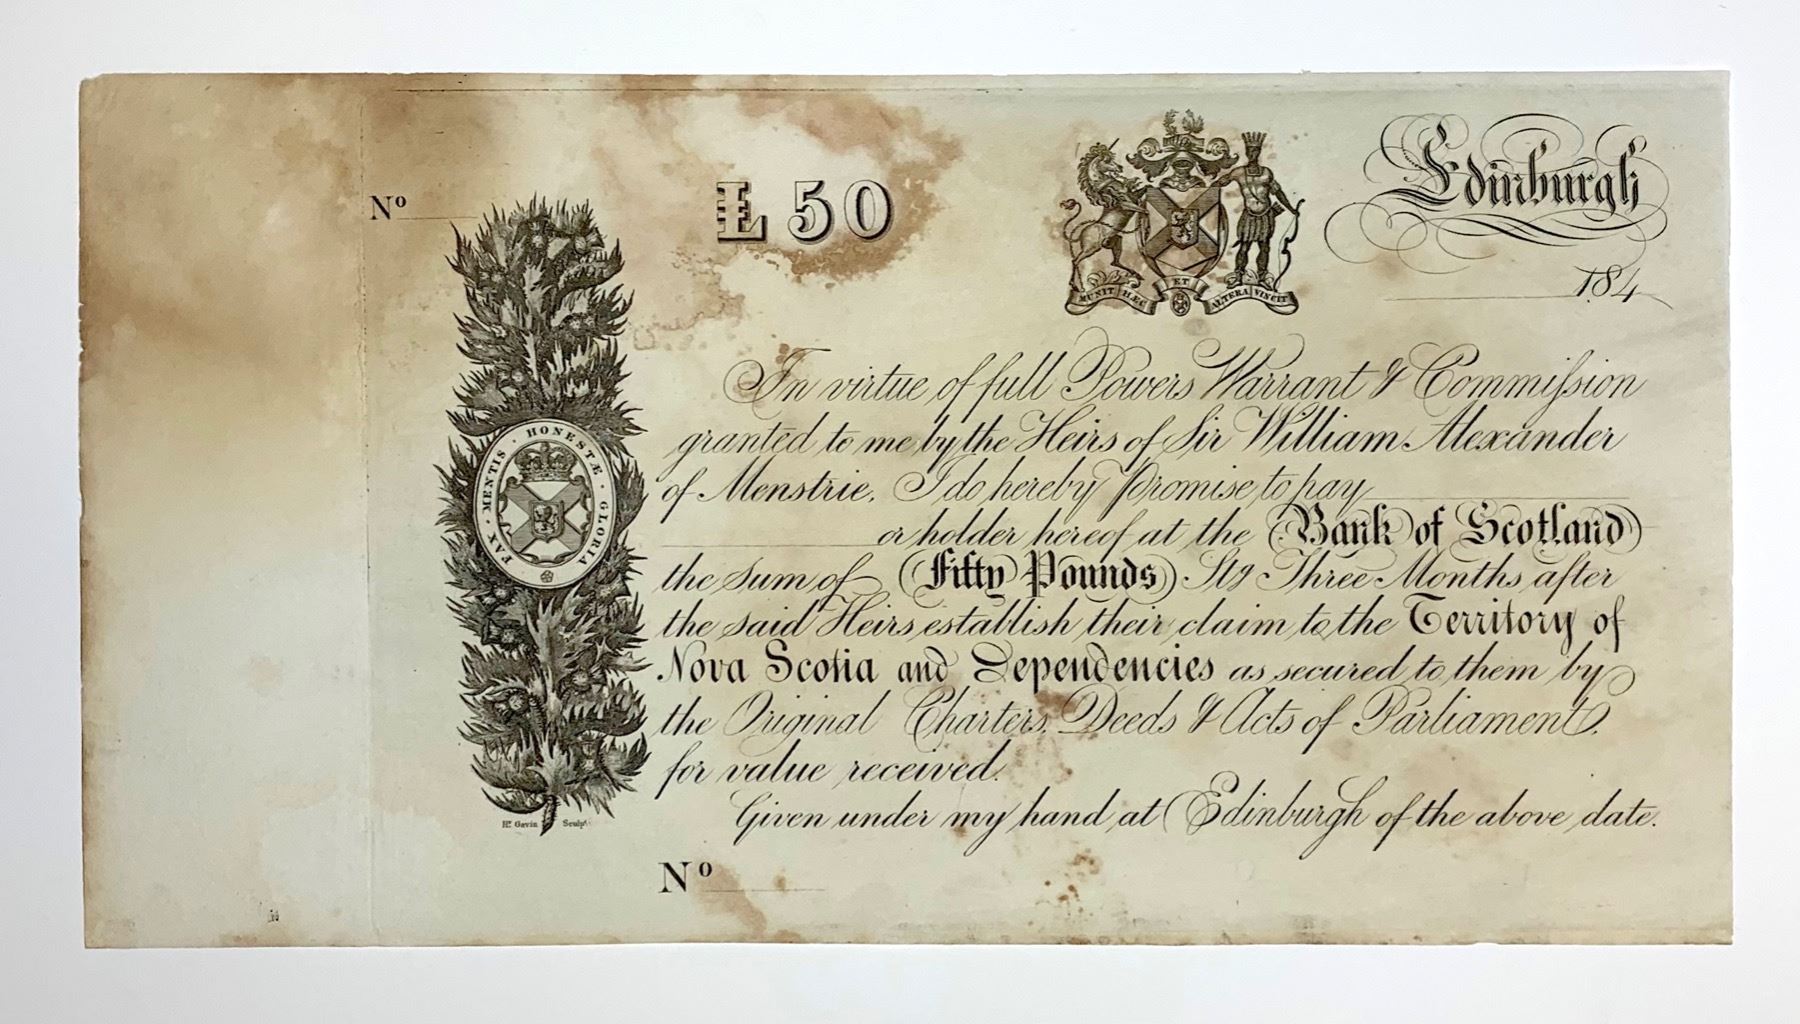 Nº
£ 50
MUNIT HÆC ET ALTERA VINCIT
Edinburgh
184
In virtue of full Powers Warrant & Commiſsion
granted to me by the Heirs of Sir William Alexander
of Menstrie, I do hereby Promise to pay
or holder hereof at the Bank of Scotland
the Sum of Fifty Pounds Stg Three Months after
the said Heirs establish their claim to the Territory of
Nova Scotia and Dependencies as secured to them by
the Original Charters, Deeds & Acts of Parliament,
for value received.
Given under my hand at Edinburgh of the above date.
PAX · MENTIS · HONESTÆ · GLORIA
Hr. Gavin Sculpt.
Nº